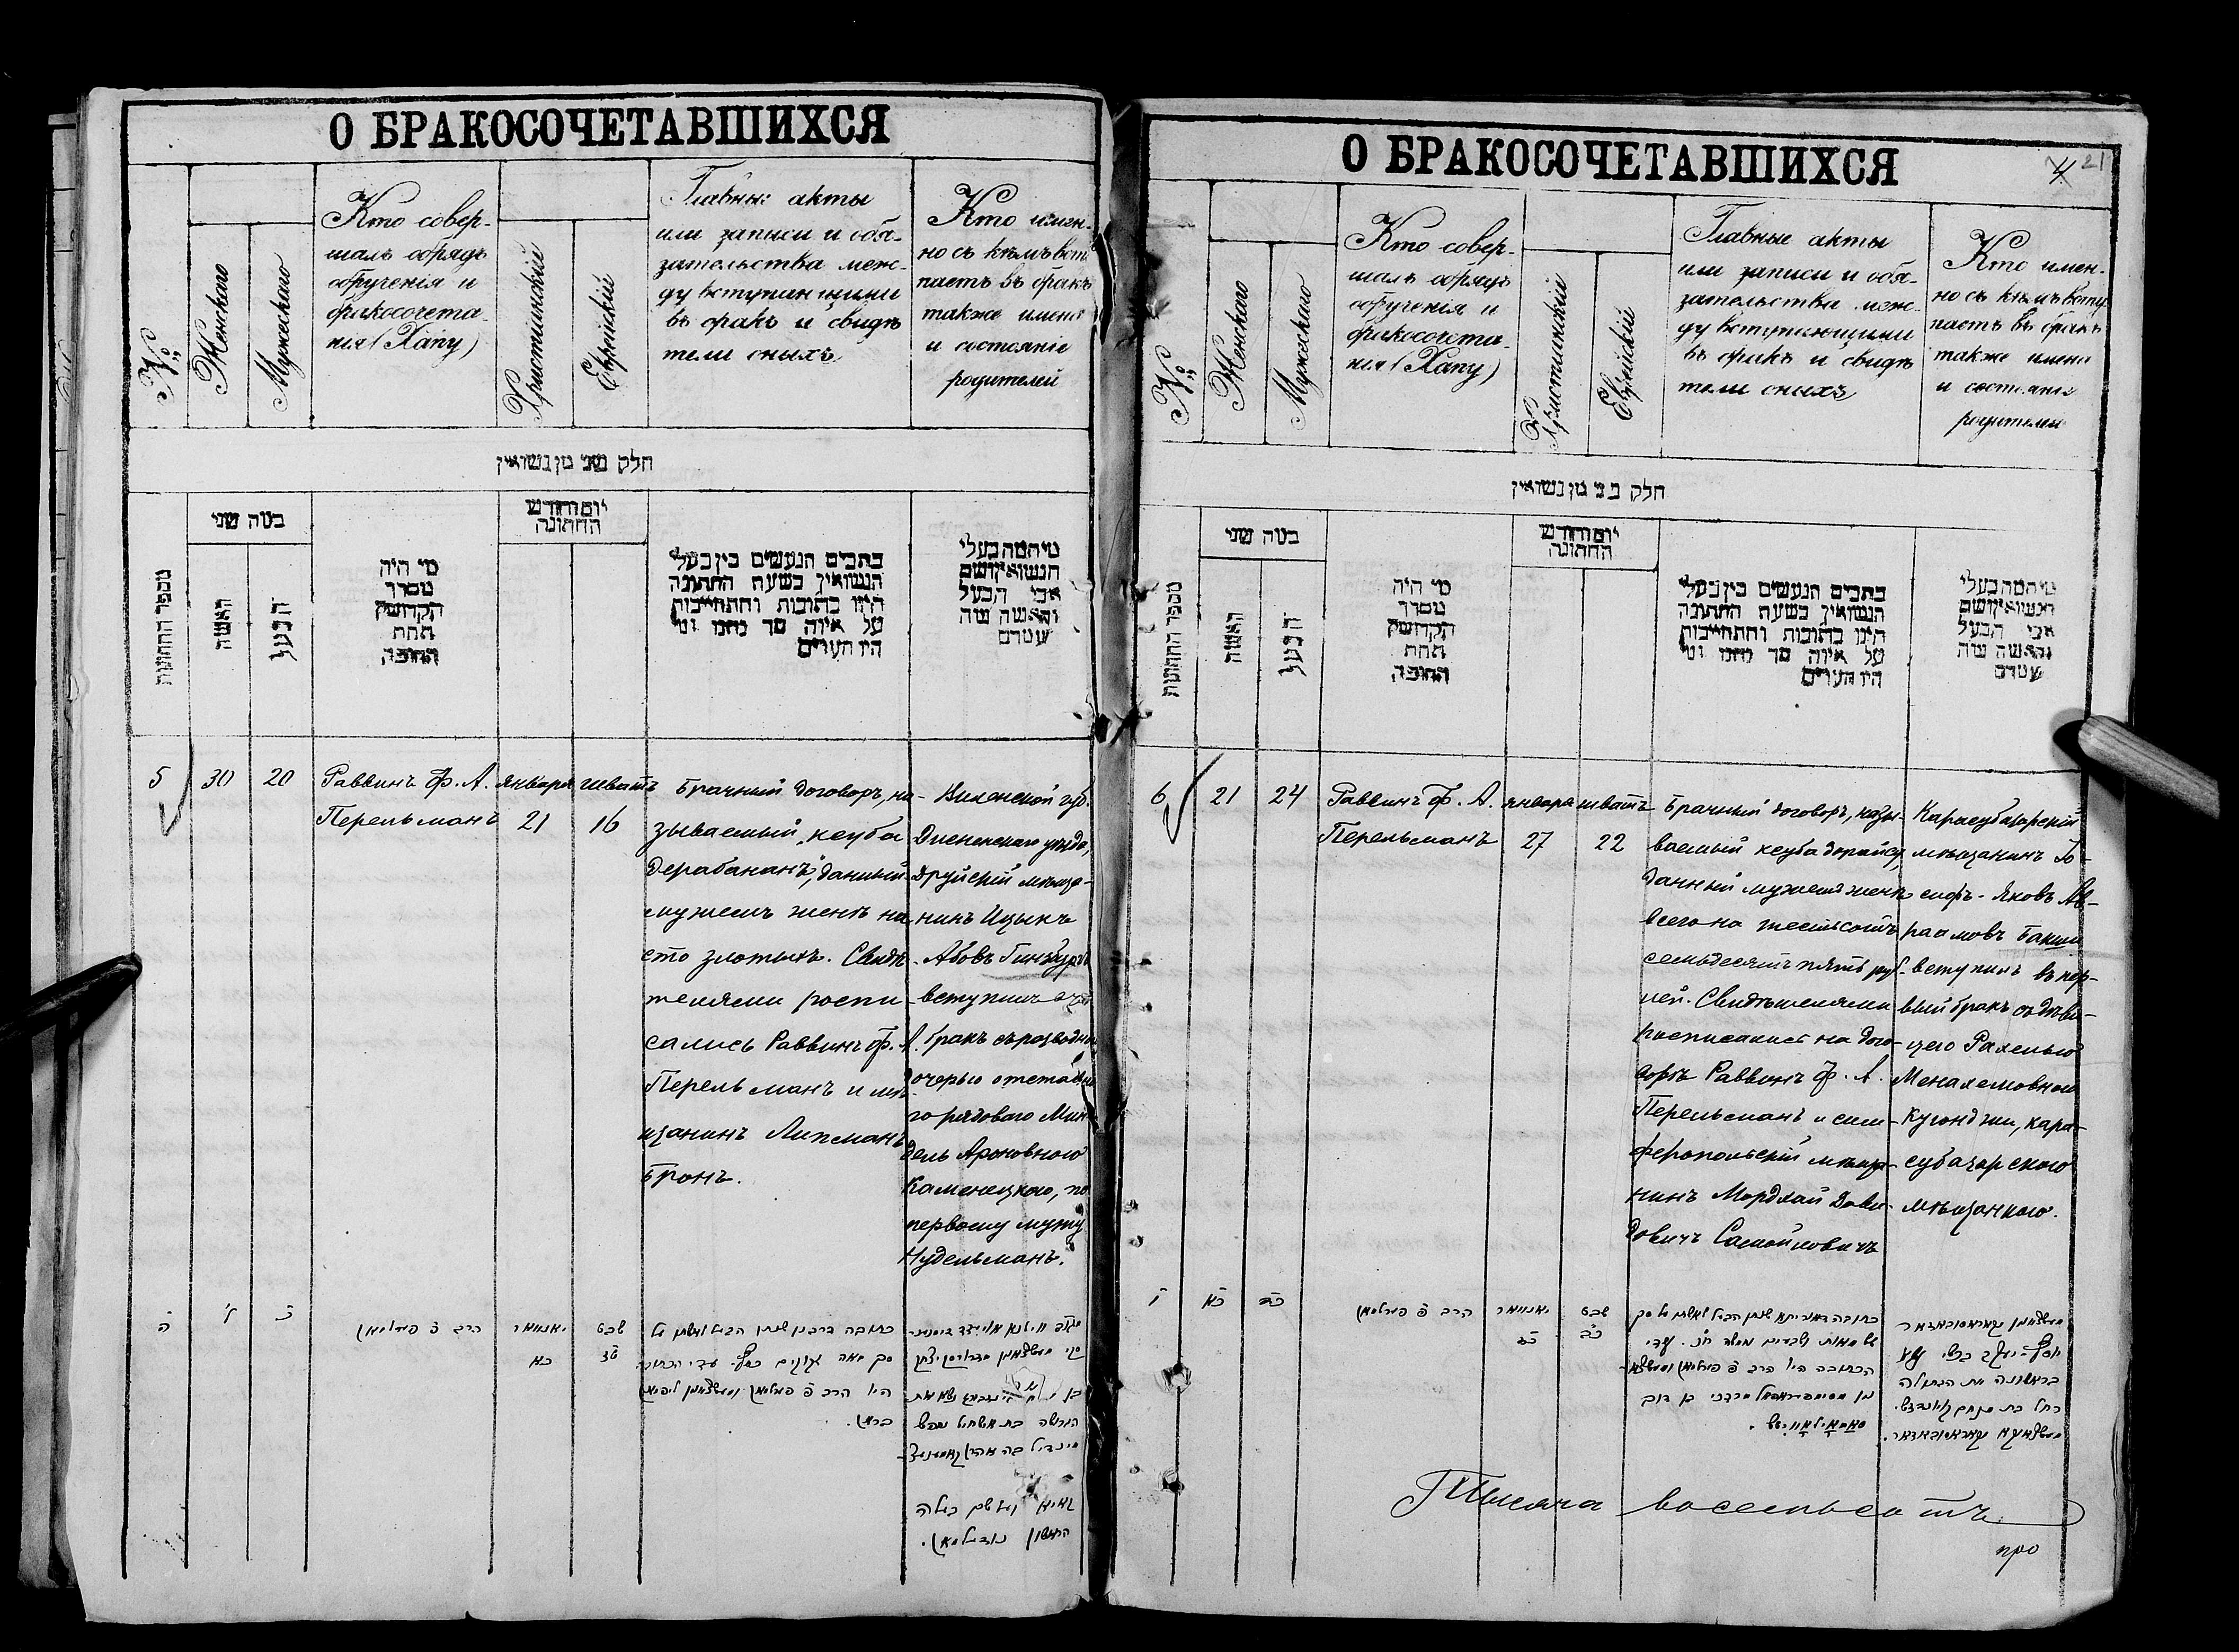 О БРАКОСОЧЕТАВШИХСЯ
№
Женскаго
Мужескаго
Кто совер-
шалъ обрядъ
обрученія и
бракосочета-
нія (Хапу)
Христіанскій
Еврейскій
Главные акты
или записи и обя-
зательства меж-
ду вступающими
въ бракъ и свидѣ
тели оныхъ
Кто имен-
но съ кѣмъ всту
паетъ въ бракъ
также имена
и состояніе
родителей
חלק שני מן נשואין
מספר החתונות
במה שני
האשה
הבעל
מי היה
מסדר
הקדושין
תחת
החופה
יום וחדש
החתונה
כתבים הנעשים בין בעלי
הנשואין בשעת החתונה
היינו כתובות והתחייבות
על איזה סך נתנו ומי
היו העדים
מי המה בעלי
הנשואין ושם
אבי הבעל
והאשה ומה
שמרם
5
30
20
Раввинъ Ф. А.
Перельманъ
января
21
шватъ
16
Брачный договоръ, на-
зываемый „кеуба
дерабананъ", данный
мужемъ женѣ на
сто злотыхъ. Свидѣ-
телями роспи-
сались Раввинъ Ф. А.
Перельманъ и мѣ-
щанинъ Липманъ
Бронъ.
Виленской губ.
Дисненскаго уѣзда,
Друйскій мѣща-
нинъ Ицыкъ
Абовъ Гинзбургъ
вступилъ
бракъ съ разводною
дочерью отставна
го рядоваго Мин-
дель Ароновною
Каменецкою, по
первому мужу
Нудельманъ.
ה
ל
כ
הרב פ פערלמאן
יאנוואר
כא
שבט
טז
כתובה דרבנן שנתן הבעל לאשתו על
סך מאה זהובים כסף עדי הכתובה
היו הרב פ פערלמאן ומעשצאנין ליפמאן
בראן.
О БРАКОСОЧЕТАВШИХСЯ
4 21
№
Женскаго
Мужескаго
Кто совер-
шалъ обрядъ
обрученія и
бракосочета-
нія (Хапу)
Христіанскій
Еврейскій
Главные акты
или записи и обя-
зательства меж-
ду вступающими
въ бракъ и свидѣ
тели оныхъ
Кто имен-
но съ кѣмъ всту
паетъ въ бракъ
также имена
и состояніе
родителей
חלק שני מן נשואין
מספר החתונות
במה שני
האשה
הבעל
מי היה
מסדר
הקדושין
תחת
החופה
יום וחדש
החתונה
כתבים הנעשים בין בעלי
הנשואין בשעת החתונה
היינו כתובות והתחייבות
על איזה סך נתנו ומי
היו העדים
מי המה בעלי
הנשואין ושם
אבי הבעל
והאשה ומה
שמרם
6
21
24
Раввинъ Ф. А.
Перельманъ
января
27
шватъ
22
Брачный договоръ, назы-
ваемый кеуба дорайса,
данный мужемъ женѣ
всего на шестьсотъ
семьдесятъ пять руб-
лей. Свидѣтелями
росписались на дого-
ворѣ Раввинъ Ф. А.
Перельманъ и сим-
феропольскій мѣща-
нинъ Мордхай Дави-
довичъ Самойловичъ
Карасубазарскій
мѣщанинъ Іо-
сифъ-Яковъ Ав-
раамовъ Бакши
вступилъ въ пер-
вый бракъ съ дѣви-
цею Рахелью
Менахемовною
Куюнджи, кара-
субазарскою
мѣщанкою.
ו
כא
כד
הרב פ פערלמאן
יאנוואר
כז
שבט
כב
Тысяча восемьсотъ
про